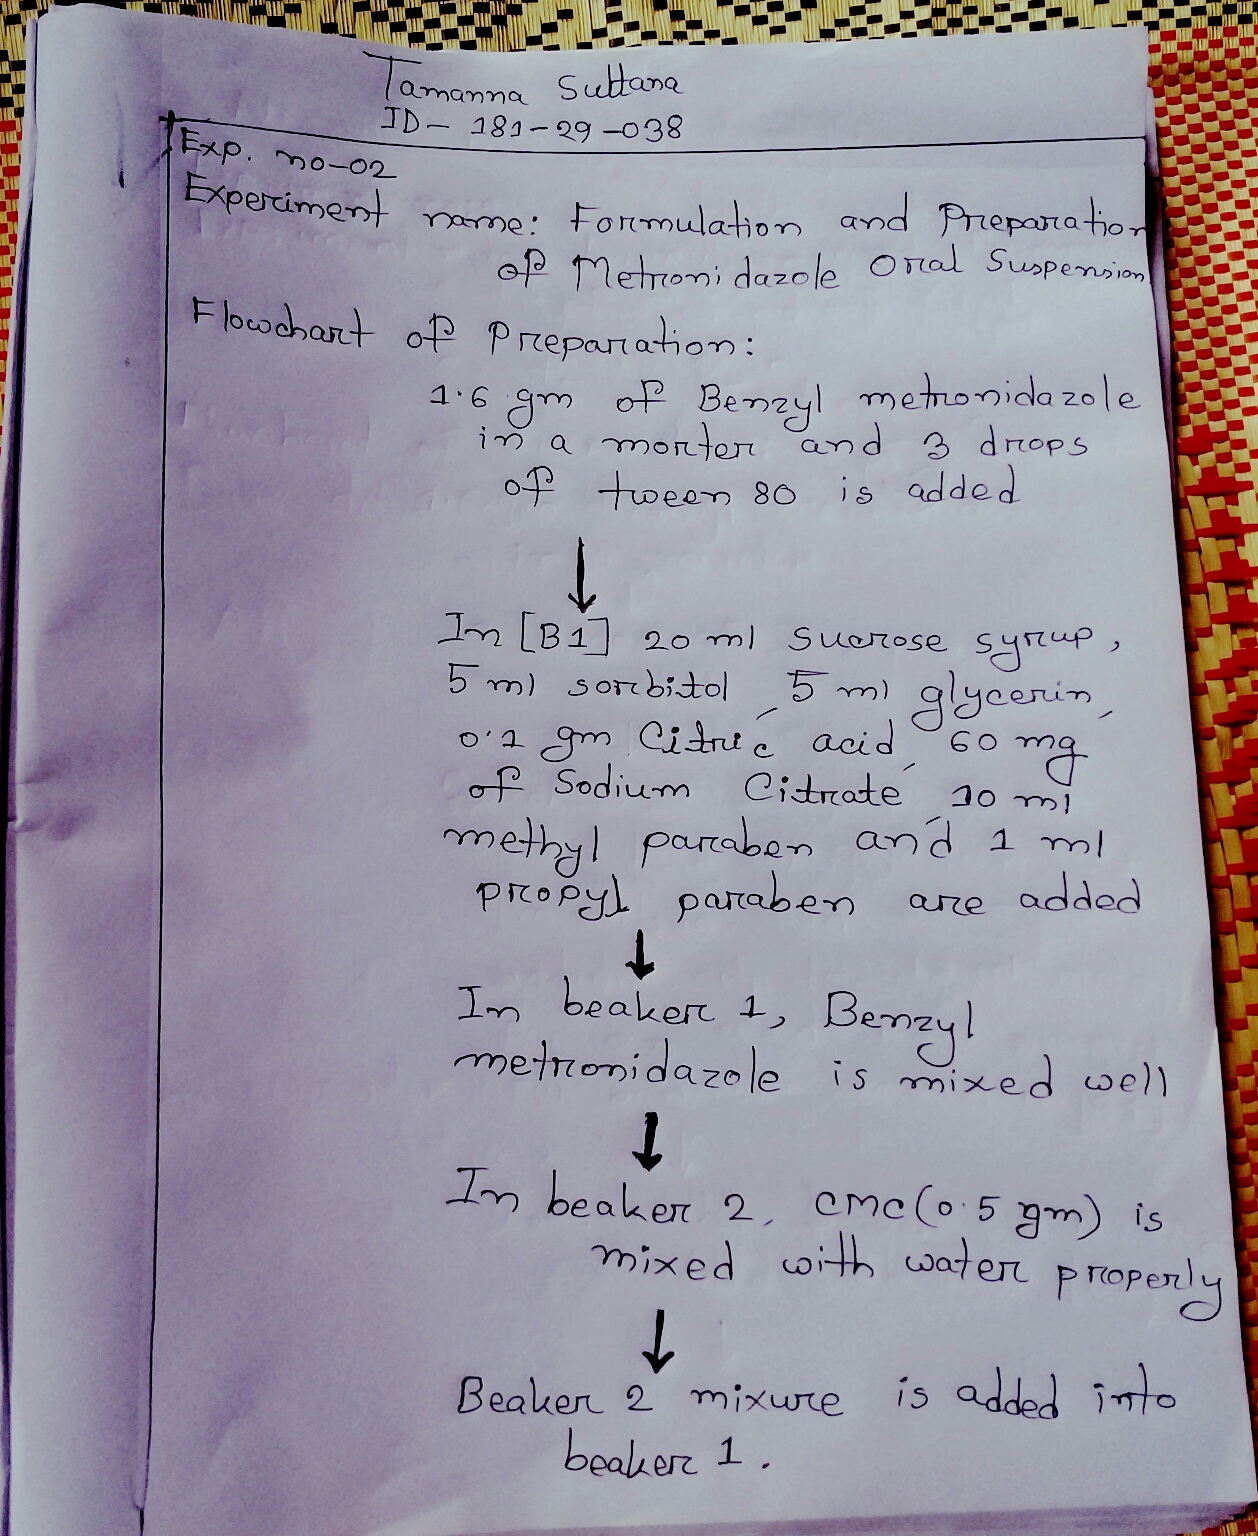 Tamanna Sultana
ID- 181-29-038
Exp. no-02
Experiment name: Formulation and Preparation
of Metronidazole Oral Suspension
Flowchart of Preparation:
1.6 gm of Benzyl metronidazole
in a morter and 3 drops
of tween 80 is added
↓
In [B1] 20 ml sucrose syrup,
5 ml sorbitol, 5 ml glycerin,
0.1 gm Citric acid, 60 mg
of Sodium Citrate, 10 ml
methyl paraben and 1 ml
propyl paraben are added
↓
In beaker 1, Benzyl
metronidazole is mixed well
↓
In beaker 2, CMC (0.5 gm) is
mixed with water properly
↓
Beaker 2 mixure is added into
beaker 1.